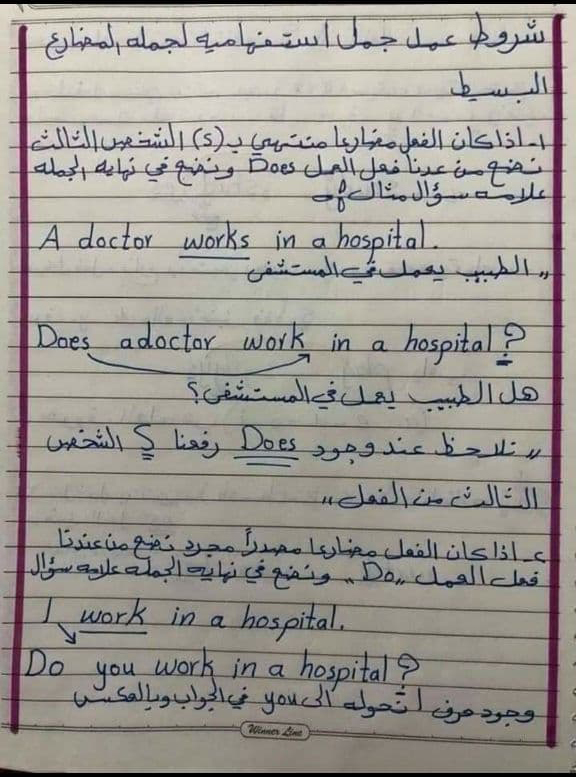 شروط عمل جمل استفهامية لجمله المضارع
البسيط
١- اذا كان الفعل مضارعا منتهي بـ (s) الشخص الثالث
نضع من عدنا فعل العمل Does ونضع في نهايه الجمله
علامه سؤال مثال
A doctor works in a hospital.
,, الطبيب يعمل في المستشفى
Does adoctor work in a hospital?
هل الطبيب يعمل في المستشفى؟
,, نلاحظ عند وجود Does رفعنا s الشخص
الثالث من الفعل ,,
٢- اذا كان الفعل مضارعا مصدراً مجرد نضع من عندنا
فعل العمل ,,Do,, ونضع في نهايه الجمله علامه سؤال
I work in a hospital.
Do you work in a hospital?
وجود حرف I تحوله الى you في الجواب وبالعكس
Winner Line